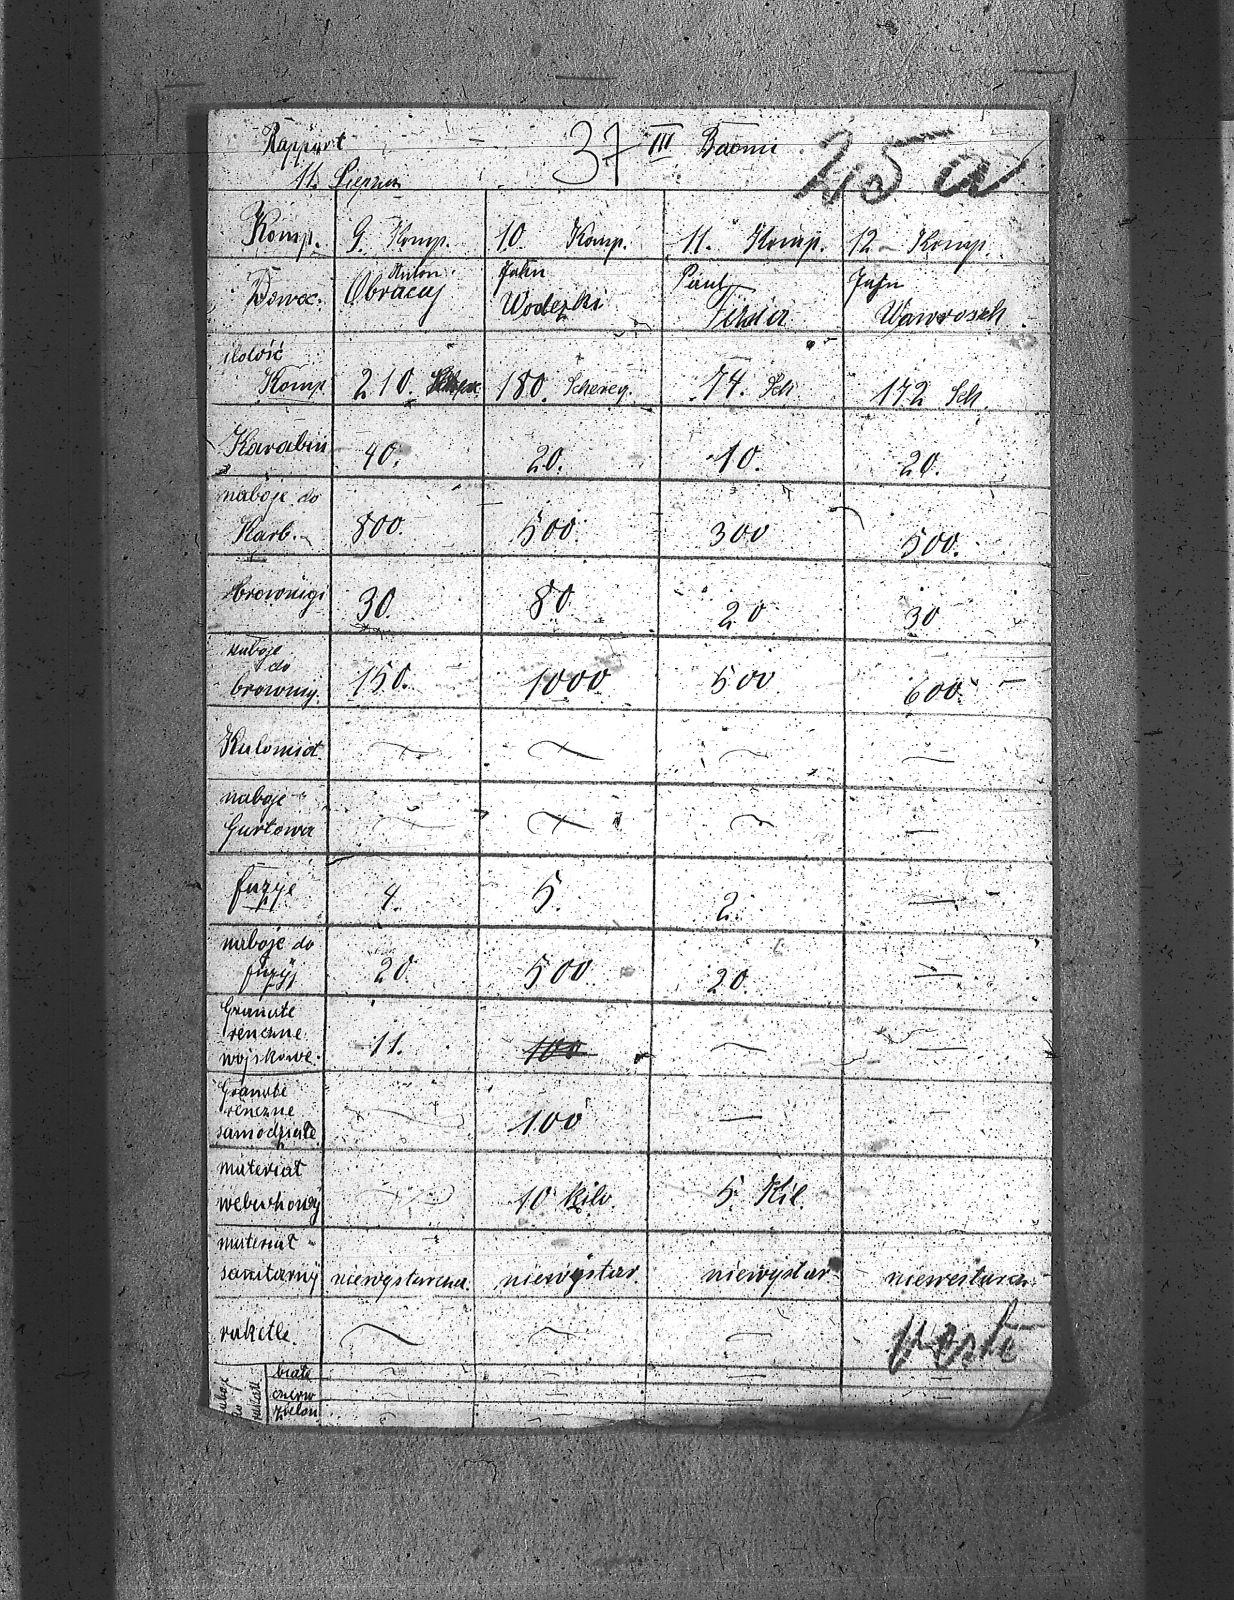 Rapport 37 III Baonu 25 a
11. Sierpn
Komp. 9. Komp. 10. Komp. 11. Komp. 12 Komp.
Dowoc. Anton Obracaj John Wodezki Paul John Wawrosch
ilość
Komp. 210. 180. Schereg. 74. Sch 172 Sch.
Karabin 40. 20. 10. 20.
naboje do
Karb. 800. 500. 300 500.
brownigi 30. 80 20 30
naboje
do
brownig. 150. 1000 500 600
Kulomiot ~ ~ ~ —
naboje
Gurtowa ~ ~ ~ —
fuzyje 4. 5. 2. —
naboje do
fuzyj 20. 500 20. —
Granate
renczne
wojskowe. 11. 100 ~ —
Granate
renczne
samodziałe ~ 100 — —
materiał
weburhowy ~ 10 kilo. 5. Kil.
materiał
sanitarny niewystarcza. niewystar. niewystar niewestarcz.
raketle. ~ ~ —
białe
czerw
zielon